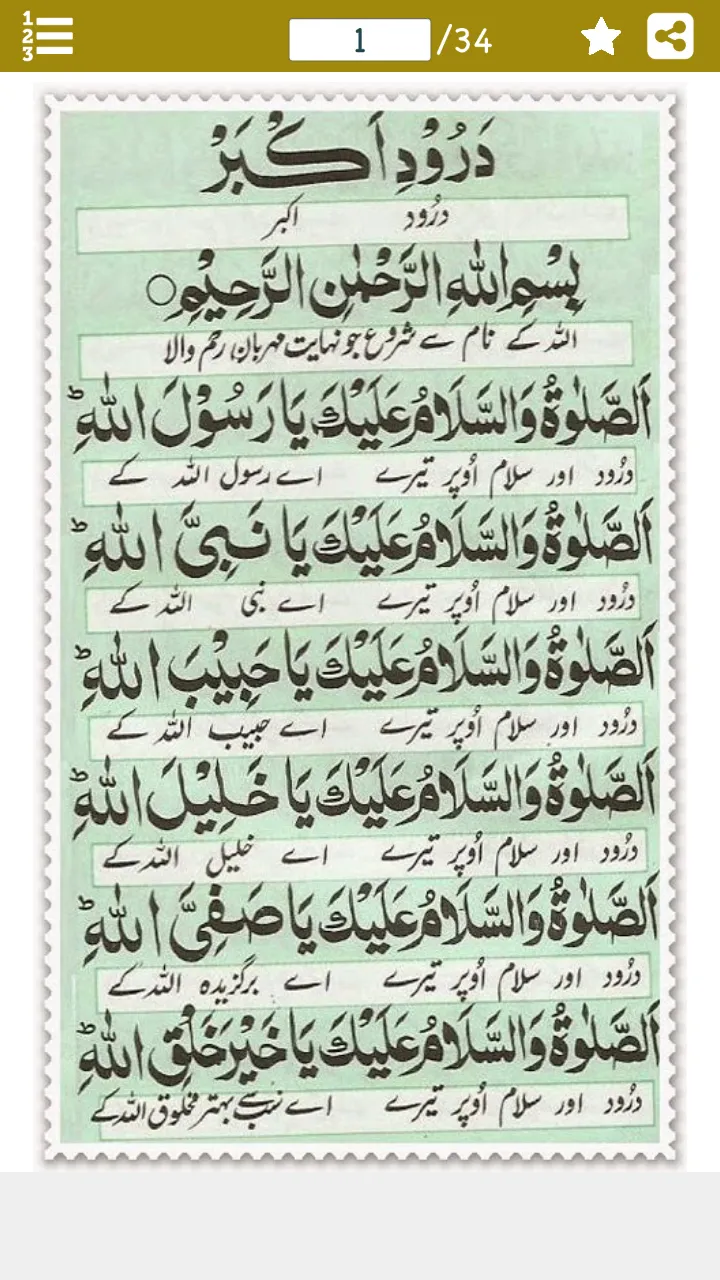 1
2
3
1 /34
دَرُوْدِ اَكْبَرْ
درُود اکبر
بِسْمِ اللهِ الرَّحْمٰنِ الرَّحِيْمِ○
اللہ کے نام سے شروع جو نہایت مہربان رحم والا
اَلصَّلٰوةُ وَالسَّلَامُ عَلَيْكَ يَا رَسُوْلَ اللهِؕ
درُود اور سلام اُوپر تیرے اے رسول اللہ کے
اَلصَّلٰوةُ وَالسَّلَامُ عَلَيْكَ يَا نَبِىَّ اللهِؕ
درُود اور سلام اُوپر تیرے اے نبی اللہ کے
اَلصَّلٰوةُ وَالسَّلَامُ عَلَيْكَ يَا حَبِيْبَ اللهِؕ
درُود اور سلام اُوپر تیرے اے حبیب اللہ کے
اَلصَّلٰوةُ وَالسَّلَامُ عَلَيْكَ يَا خَلِيْلَ اللهِؕ
درُود اور سلام اُوپر تیرے اے خلیل اللہ کے
اَلصَّلٰوةُ وَالسَّلَامُ عَلَيْكَ يَا صَفِىَّ اللهِؕ
درُود اور سلام اُوپر تیرے اے برگزیدہ اللہ کے
اَلصَّلٰوةُ وَالسَّلَامُ عَلَيْكَ يَا خَيْرَ خَلْقِ اللهِؕ
درُود اور سلام اُوپر تیرے اے سب سے بہتر مخلوق اللہ کے